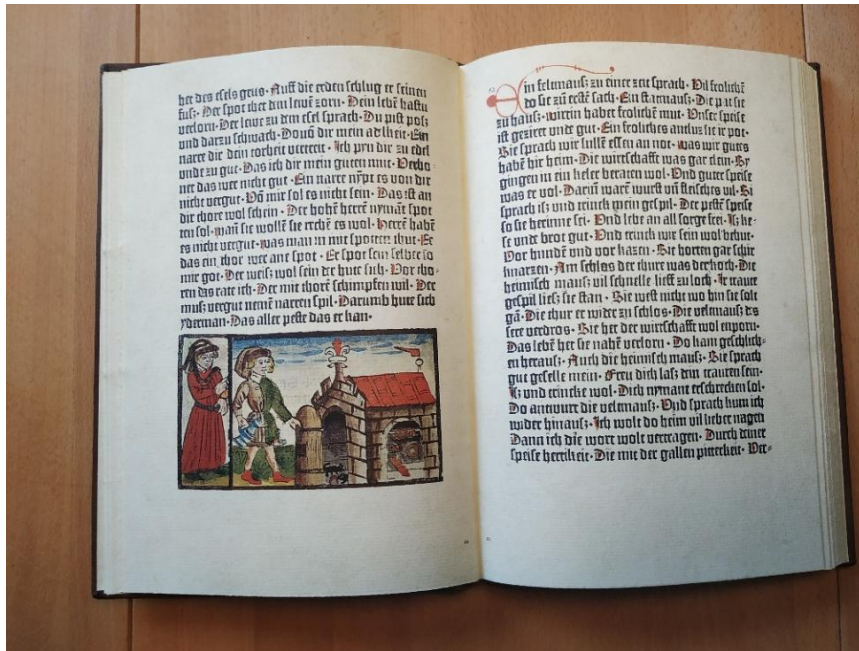 het des esels geus · Auff die erden schlug er seinen
fus · Der spot thet dem lewen zorn · Dein lebē hastu
verlorn · Der lewe zu dem esel sprach · Du pist poſʒ
und darzu schwach · Douō dir mein adlkeit · Ein
narre dir dein torheit verzeit · Ich pin dir zu edel
unde zu gut · Das ich dir mein guten mut · Verho
ner das wer nicht gut · Ein narre nÿpt es von dir
nicht vergut · Vō mir sol es nicht sein · Das ist an
dir thore wol schein · Der hohē herrē nymāt spot
ten sol · wan sie wollē sie rechē es wol · Herrē habē
es nicht vergut · was man in mit spotten thut · Er
das ein thor wer ane spot · Er spot sein selber so
mir got · Der weis wol sein der hute sich · Vor tho-
ren das rate ich · Der mit thorē schimpfen wil · Der
mus vergut nemē narren spil · Darumb hute sich
yderman · Das aller peste das er kan ·
Ein feltmauſʒ zu einer zeit sprach · Vil frolichē
do sie zu erste sach · Ein statmauſʒ · Die pat sie
zu hauſʒ · wirtin habet frolichē mut · Unser speise
ist geziert unde gut · Ein froliches antlutʒ ir pot ·
Sie sprach wir sullē essen an not · was wir guts
habē hir heim · Die wirtschafft was gar clein · Sy
gingen in ein keler beraten wol · Und guter speise
was er vol · Darin warē wurst vn̄ fleisches vil · Si
sprach iſʒ und trinck mein gespil · Der pestē speise
so sie herinne sei · Und lebe an all sorge frei · Iſʒ ke-
se unde brot gut · Und trinck wir sein wol behut ·
Vor hundē und vor kazen · Sie horten gar schir
knarzen · Am schlos der thurr was der koch · Die
heimisch mauſʒ vil schnelle lieff zu loch · Ir traute
gespil liesʒ sie stan · Sie west nicht wo hin sie solt
gā · Die thur er wider zu schlos · Die veltmauſʒ dʒ
seer verdros · Sie het der wirtschafft wol enporn ·
Das lebē het sie nahē verlorn · Do kam geschlich-
en heraus · Auch die heimisch mauſʒ · Sie sprach
gut geselle mein · Freu dich lasʒ dein trauren sein ·
Iſʒ und trincke wol · Dich nymant erschrecken sol ·
Do antwurt die veltmauſʒ · Und sprach kum ich
wider hinauſʒ · Ich wolt do heim vil lieber nagen
Dann ich die wort wolt vertragen · Durch deiner
speise herrikeit · Die mit der gallen pitterkeit · Ver-